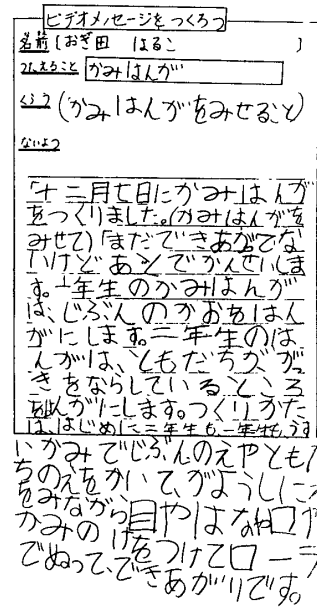 ビデオメッセージをつくろう
名前(おぎ田 はるこ )
つたえること かみはんが
くふう (かみはんがをみせること)
ないよう
「十二月七日にかみはんが
をつくりました。(かみはんがを
みせて)「まだできあがてな
いけどあとでかんせいしま
す。一年生のかみはんが
は、じぶんのかおをはん
がにします。二年生のは
んがは、ともだちが、がっ
きをならしているところ
をはんがにします。つくりかた
は、はじめに、二年生も、一年生も、うす
いかみでじぶんのえやともだ
ちのえをかいて、がようしに
をみながら目やはなや口や
かみのけをつけてローラ
でぬって、できあがりです。